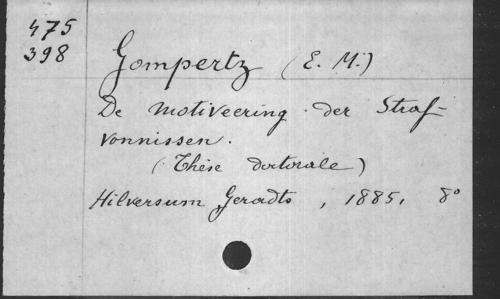 475
398
Gompertz (E. M.)
De Motiveering der Straf-
vonnissen.
(Thèse doctorale)
Hilversum, Geradts, 1885, 8°